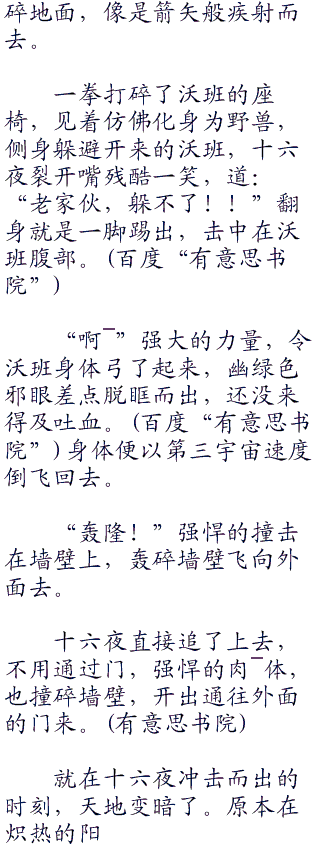 碎地面，像是箭矢般疾射而
去。
一拳打碎了沃班的座
椅，见着仿佛化身为野兽，
侧身躲避开来的沃班，十六
夜裂开嘴残酷一笑，道：
“老家伙，躲不了！！”翻
身就是一脚踢出，击中在沃
班腹部。(百度“有意思书
院”)
“啊¯”强大的力量，令
沃班身体弓了起来，幽绿色
邪眼差点脱眶而出，还没来
得及吐血。(百度“有意思书
院”)身体便以第三宇宙速度
倒飞回去。
“轰隆！”强悍的撞击
在墙壁上，轰碎墙壁飞向外
面去。
十六夜直接追了上去，
不用通过门，强悍的肉¯体，
也撞碎墙壁，开出通往外面
的门来。(有意思书院)
就在十六夜冲击而出的
时刻，天地变暗了。原本在
炽热的阳